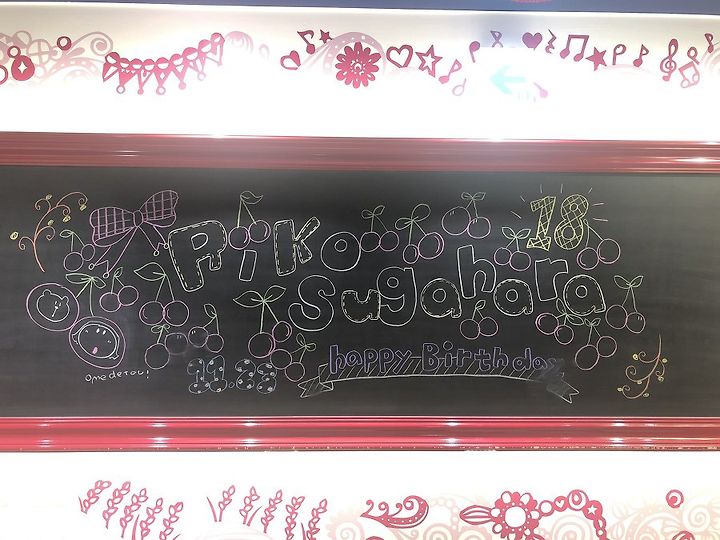 Riko
18
Sugahara
Omedetou!
11.23
happy Birthday